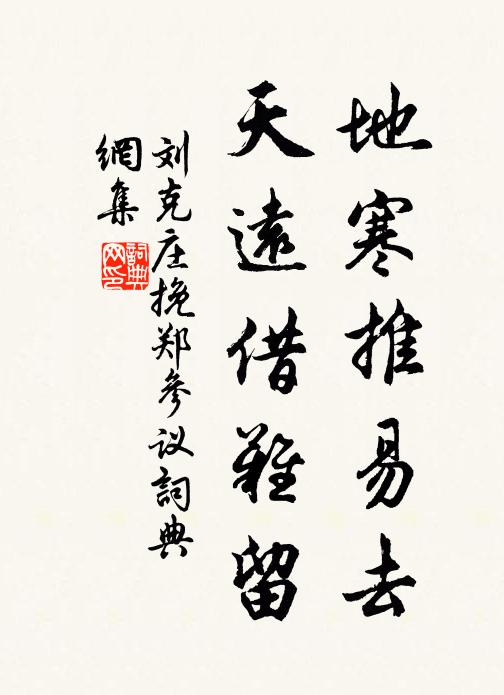 地寒推易去
天遠借難留
刘克庄挽郑參议詞典
網集
詞典
网印